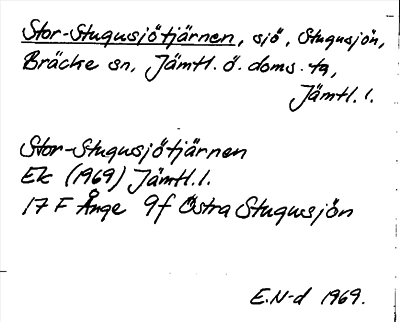 Stor-Stugusjötjärnen, sjö, Stugusjön,
Bräcke sn, Jämtl. ö. doms. ta,
Jämtl. l.
Stor-Stugusjötjärnen
Ek (1969) Jämtl. l.
17 F Ånge 9f Östra Stugusjön
E.N-d 1969.